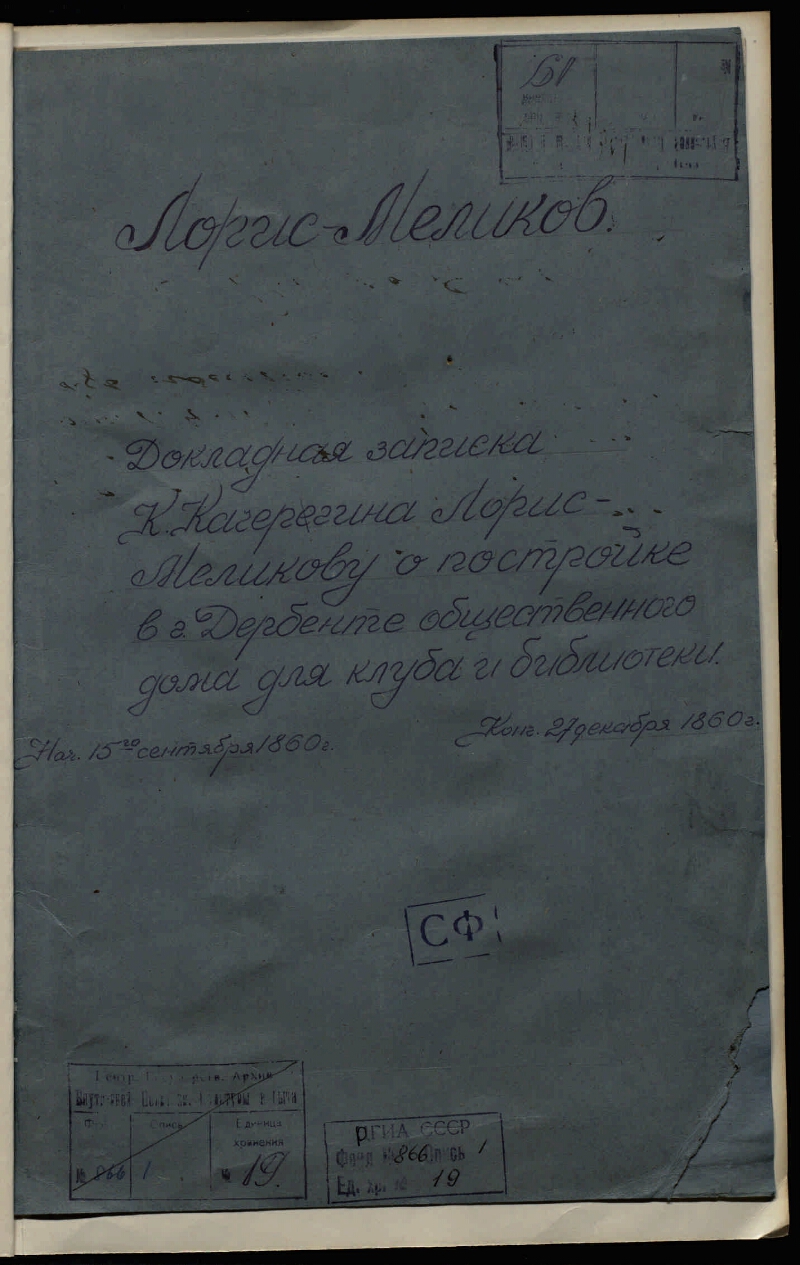 Лорис-Меликов.
Докладная записка
К. Кагерегина Лорис-
Меликову о постройке
в г. Дербенте общественного
дома для клуба и библиотеки.
Нач. 15го сентября 1860 г.
Конч. 27 декабря 1860 г.
СФ
Архив
Единица
хранения
№ 866
1
№ 19.
РГИА СССР
Фонд № 866 Опись 1
Ед. хр. № 19